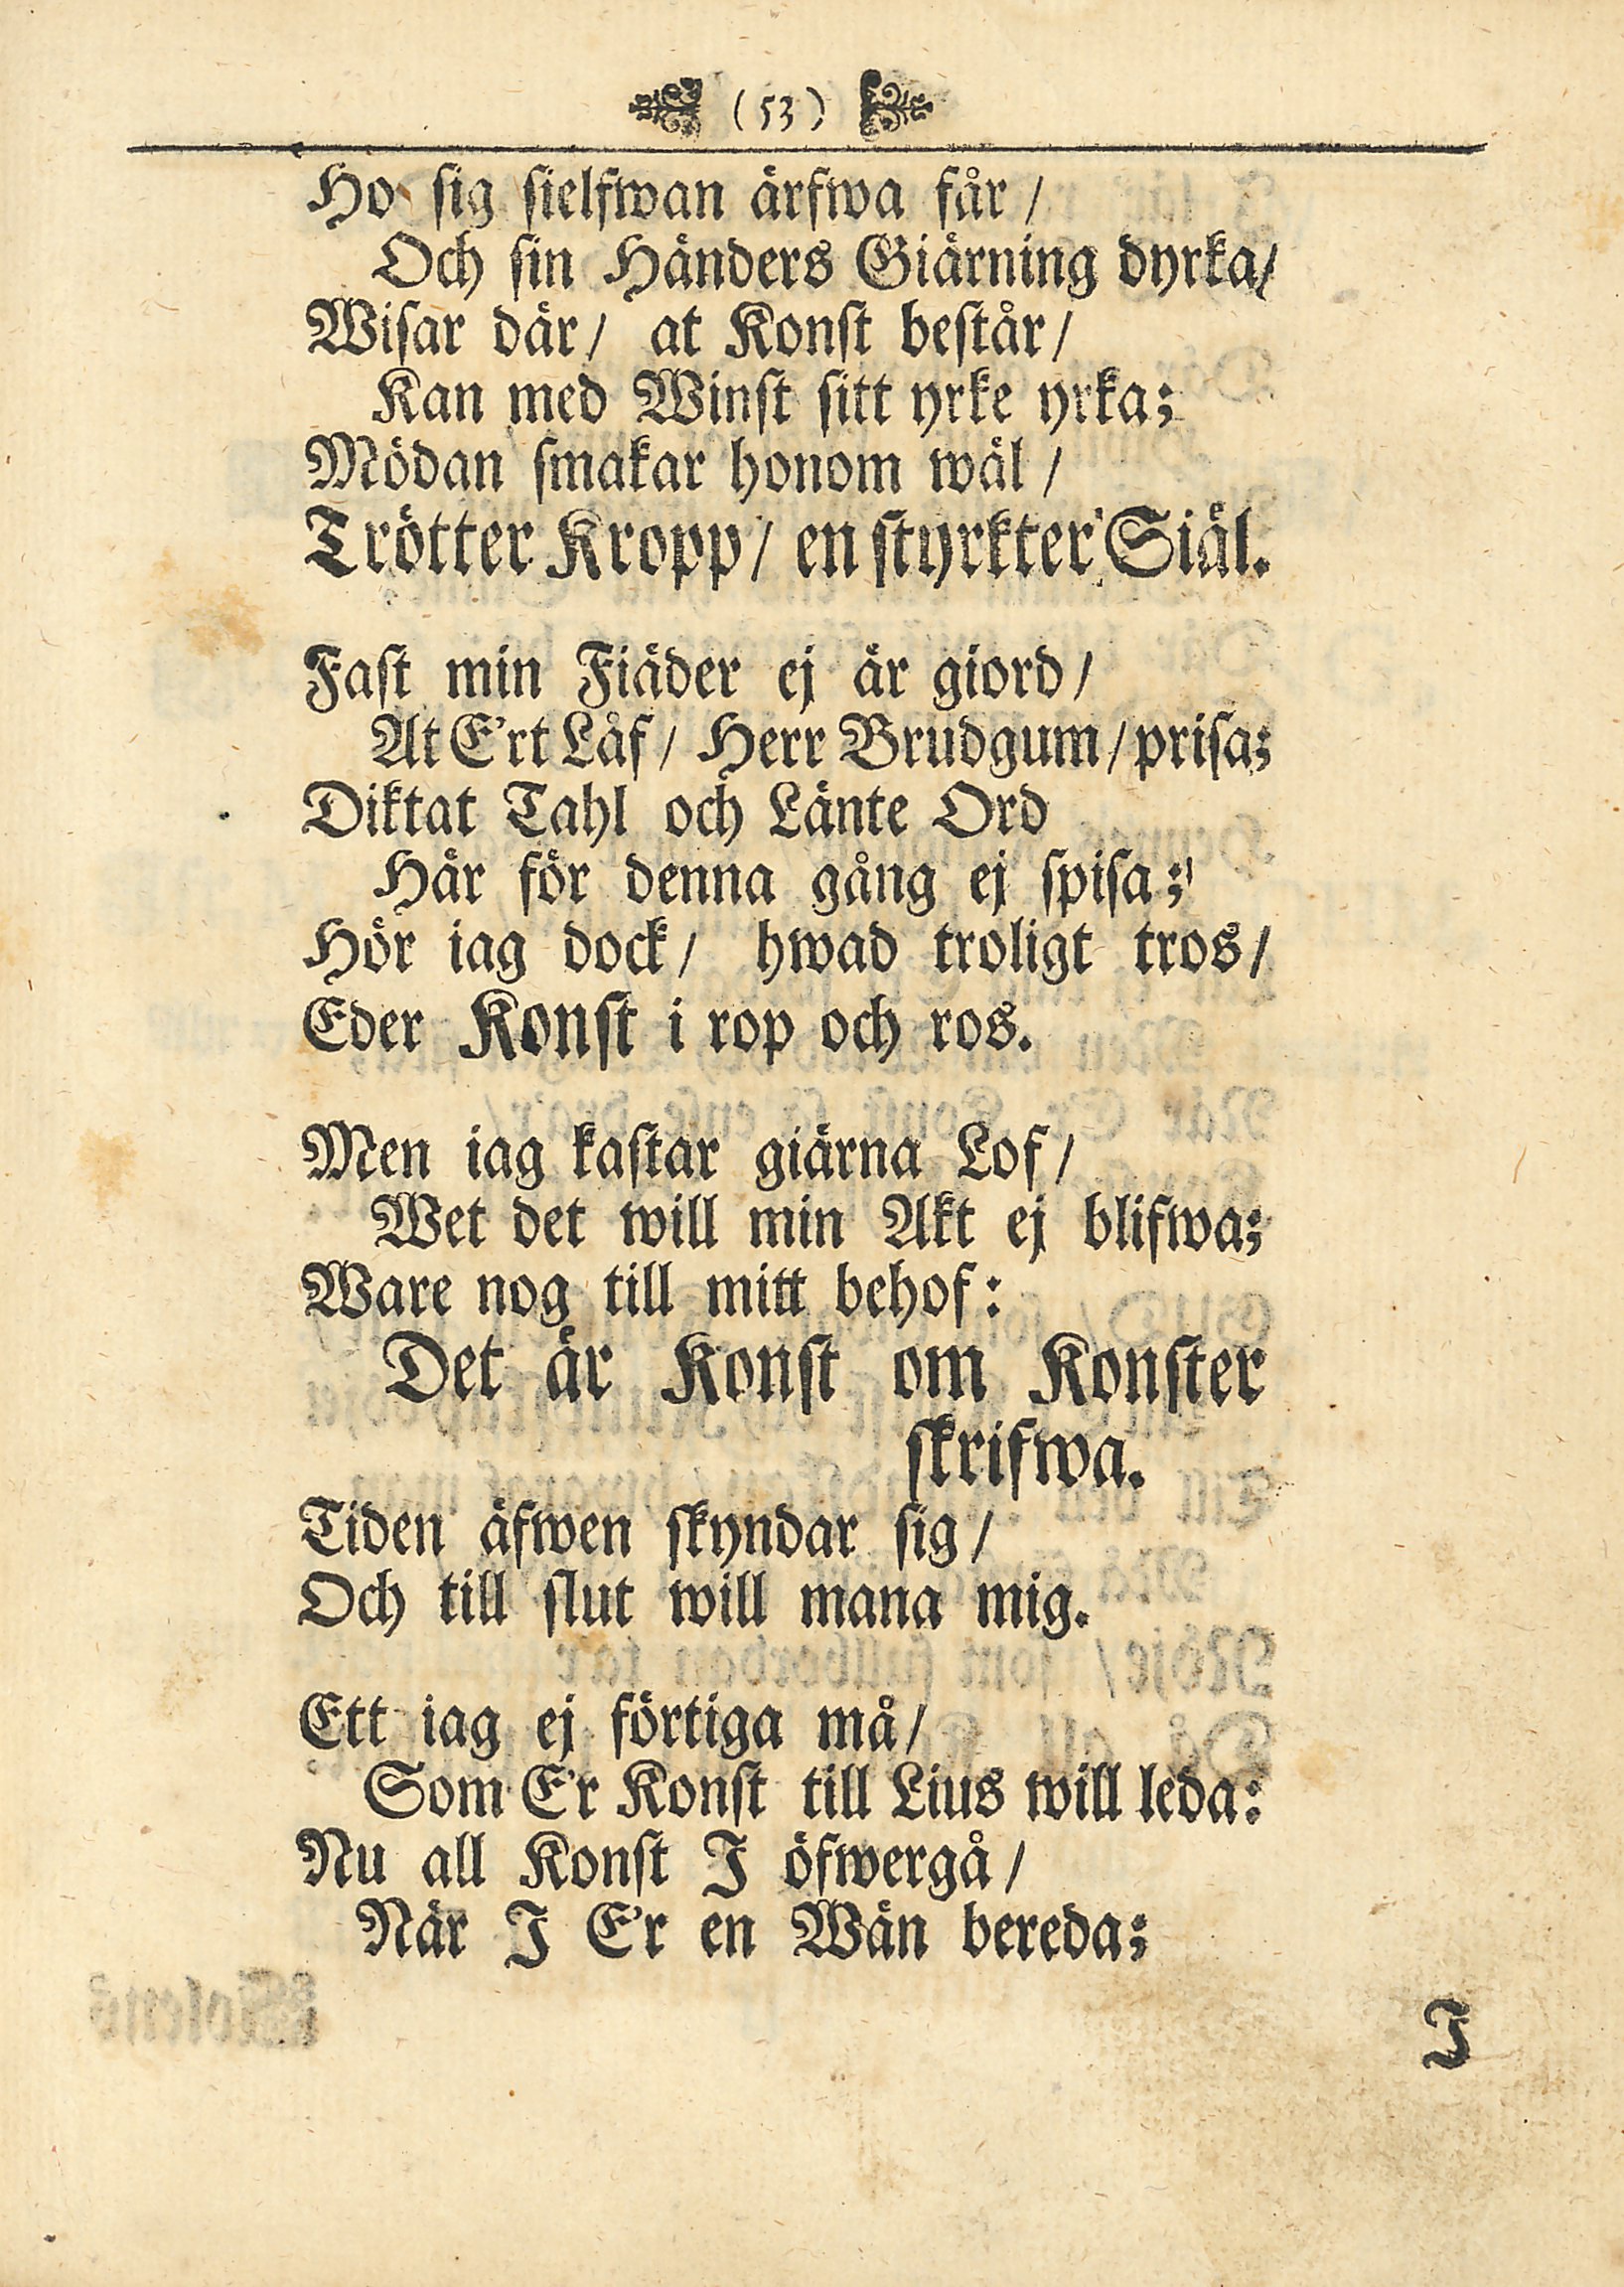 (53)
Ho sig sielfwan ärfwa får/
Och sin Händers Giärning dyrka/
Wisar där/ at Konst består/
Kan med Winst sitt yrke yrka;
Mödan smakar honom wäl/
Trötter Kropp/ en styrkter Siäl.
Fast min Fiäder ej är giord/
At E'rt Låf/ Herr Brudgum/ prisa;
Diktat Tahl och Länte Ord
Här för denna gång ej spisa;
Hör iag dock/ hwad troligt tros/
Eder Konst i rop och ros.
Men iag kastar giärna Lof/
Wet det will min Akt ej blifwa;
Ware nog till mitt behof:
Det är Konst om Konster
skrifwa.
Tiden äfwen skyndar sig/
Och till slut will mana mig.
Ett iag ej förtiga må/
Som E'r Konst till Lius will leda:
Nu all Konst I öfwergå/
När I E'r en Wän bereda;
I